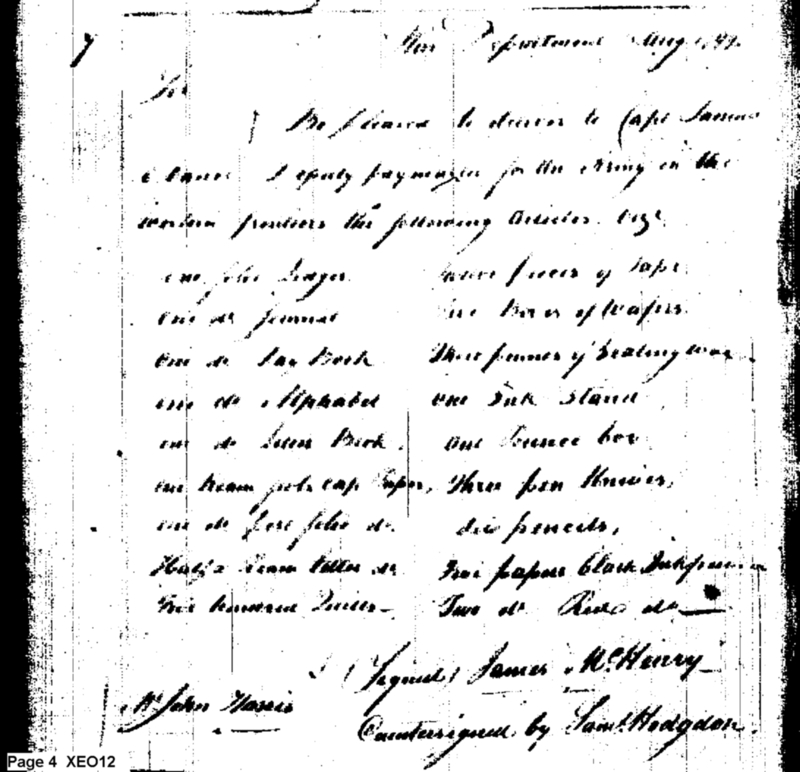 7
War Department Aug
Sir
Be pleased to deliver to Capt James
Deputy paymaster for the Army on the
western frontiers the following articles Viz
one folio Ledger
one do Journal
one do Day Book
one do Alphabet
one do Letter Book.
one Ream fools cap Paper,
one do post folio do
Half a Ream Letter do
Five hundred Quills
pieces of Tape
Boxes of Wafers
Three pounds of Sealing Wax
one Ink Stand
one Pounce box
Three pen Knives,
Six pencils,
papers black Ink powder
Two do Red do
(Signed) James McHenry
Mr John Harris
Countersigned by Saml Hodgdon.
Page 4 XEO12